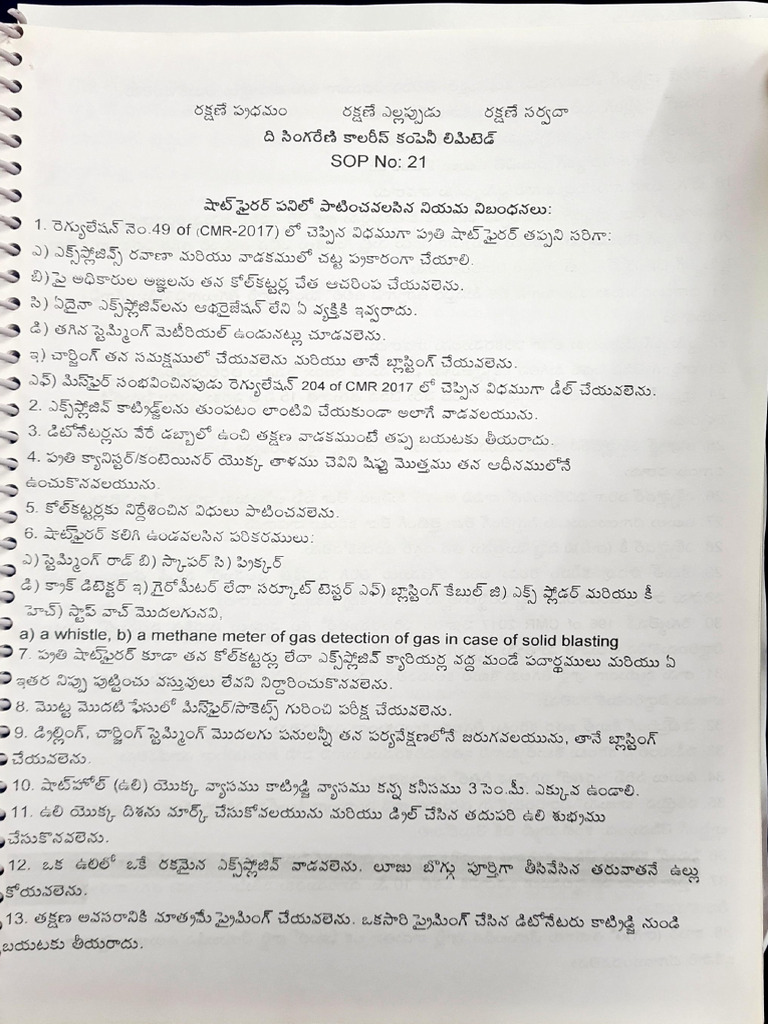 రక్షణే ప్రథమం రక్షణే ఎల్లప్పుడు రక్షణే సర్వదా
ది సింగరేణి కాలరీస్ కంపెనీ లిమిటెడ్
SOP No: 21
షాట్‌ఫైరర్ పనిలో పాటించవలసిన నియమ నిబంధనలు:
1. రెగ్యులేషన్ నెం.49 of (CMR-2017) లో చెప్పిన విధముగా ప్రతి షాట్‌ఫైరర్ తప్పని సరిగా:
ఎ) ఎక్స్‌ప్లోజివ్స్ రవాణా మరియు వాడకములో చట్ట ప్రకారంగా చేయాలి.
బి) పై అధికారుల అజ్ఞలను తన కోల్‌కట్టర్ల చేత ఆచరింప చేయవలెను.
సి) ఏదైనా ఎక్స్‌ప్లోజివ్‌లను ఆథరైజేషన్ లేని ఏ వ్యక్తికి ఇవ్వరాదు.
డి) తగిన స్టెమ్మింగ్ మెటీరియల్ ఉండునట్లు చూడవలెను.
ఇ) చార్జింగ్ తన సమక్షములో చేయవలెను మరియు తానే బ్లాస్టింగ్ చేయవలెను.
ఎఫ్) మిస్‌ఫైర్ సంభవించినపుడు రెగ్యులేషన్ 204 of CMR 2017 లో చెప్పిన విధముగా డీల్ చేయవలెను.
2. ఎక్స్‌ప్లోజివ్ కాట్రిడ్జ్‌లను తుంపటం లాంటివి చేయకుండా అలాగే వాడవలయును.
3. డిటోనేటర్లను వేరే డబ్బాలో ఉంచి తక్షణ వాడకముంటే తప్ప బయటకు తీయరాదు.
4. ప్రతి క్యానిస్టర్/కంటెయినర్ యొక్క తాళము చెవిని షిఫ్టు మొత్తము తన ఆధీనములోనే
ఉంచుకొనవలయును.
5. కోల్‌కట్టర్లకు నిర్దేశించిన విధులు పాటించవలెను.
6. షాట్‌ఫైరర్ కలిగి ఉండవలసిన పరికరములు:
ఎ) స్టెమ్మింగ్ రాడ్ బి) స్కాపర్ సి) ప్రిక్కర్
డి) క్రాక్ డిటెక్టర్ ఇ) గైరోమీటర్ లేదా సర్క్యూట్ టెస్టర్ ఎఫ్) బ్లాస్టింగ్ కేబుల్ జి) ఎక్స్ ప్లోడర్ మరియు కీ
హెచ్) స్టాప్ వాచ్ మొదలగునవి,
a) a whistle, b) a methane meter of gas detection of gas in case of solid blasting
7. ప్రతి షాట్‌ఫైరర్ కూడా తన కోల్‌కట్టర్లు లేదా ఎక్స్‌ప్లోజివ్ క్యారియర్ల వద్ద మండే పదార్థములు మరియు ఏ
ఇతర నిప్పు పుట్టించు వస్తువులు లేవని నిర్ధారించుకొనవలెను.
8. మొట్ట మొదటి ఫేసులో మిస్‌ఫైర్/సాకెట్స్ గురించి పరీక్ష చేయవలెను.
9. డ్రిల్లింగ్, చార్జింగ్ స్టెమ్మింగ్ మొదలగు పనులన్నీ తన పర్యవేక్షణలోనే జరుగవలయును, తానే బ్లాస్టింగ్
చేయవలెను.
10. షాట్‌హోల్ (ఉలి) యొక్క వ్యాసము కాట్రిడ్జి వ్యాసము కన్న కనీసము 3 సెం.మీ. ఎక్కువ ఉండాలి.
11. ఉలి యొక్క దిశను మార్క్ చేసుకోవలయును మరియు డ్రిల్ చేసిన తదుపరి ఉలి శుభ్రము
చేసుకొనవలెను.
12. ఒక ఉలిలో ఒకే రకమైన ఎక్స్‌ప్లోజివ్ వాడవలెను. లూజు బొగ్గు పూర్తిగా తీసివేసిన తరువాతనే ఉల్లు
కోయవలెను.
13. తక్షణ అవసరానికి మాత్రమే ప్రైమింగ్ చేయవలెను. ఒకసారి ప్రైమింగ్ చేసిన డిటోనేటరు కాట్రిడ్జి నుండి
బయటకు తీయరాదు.